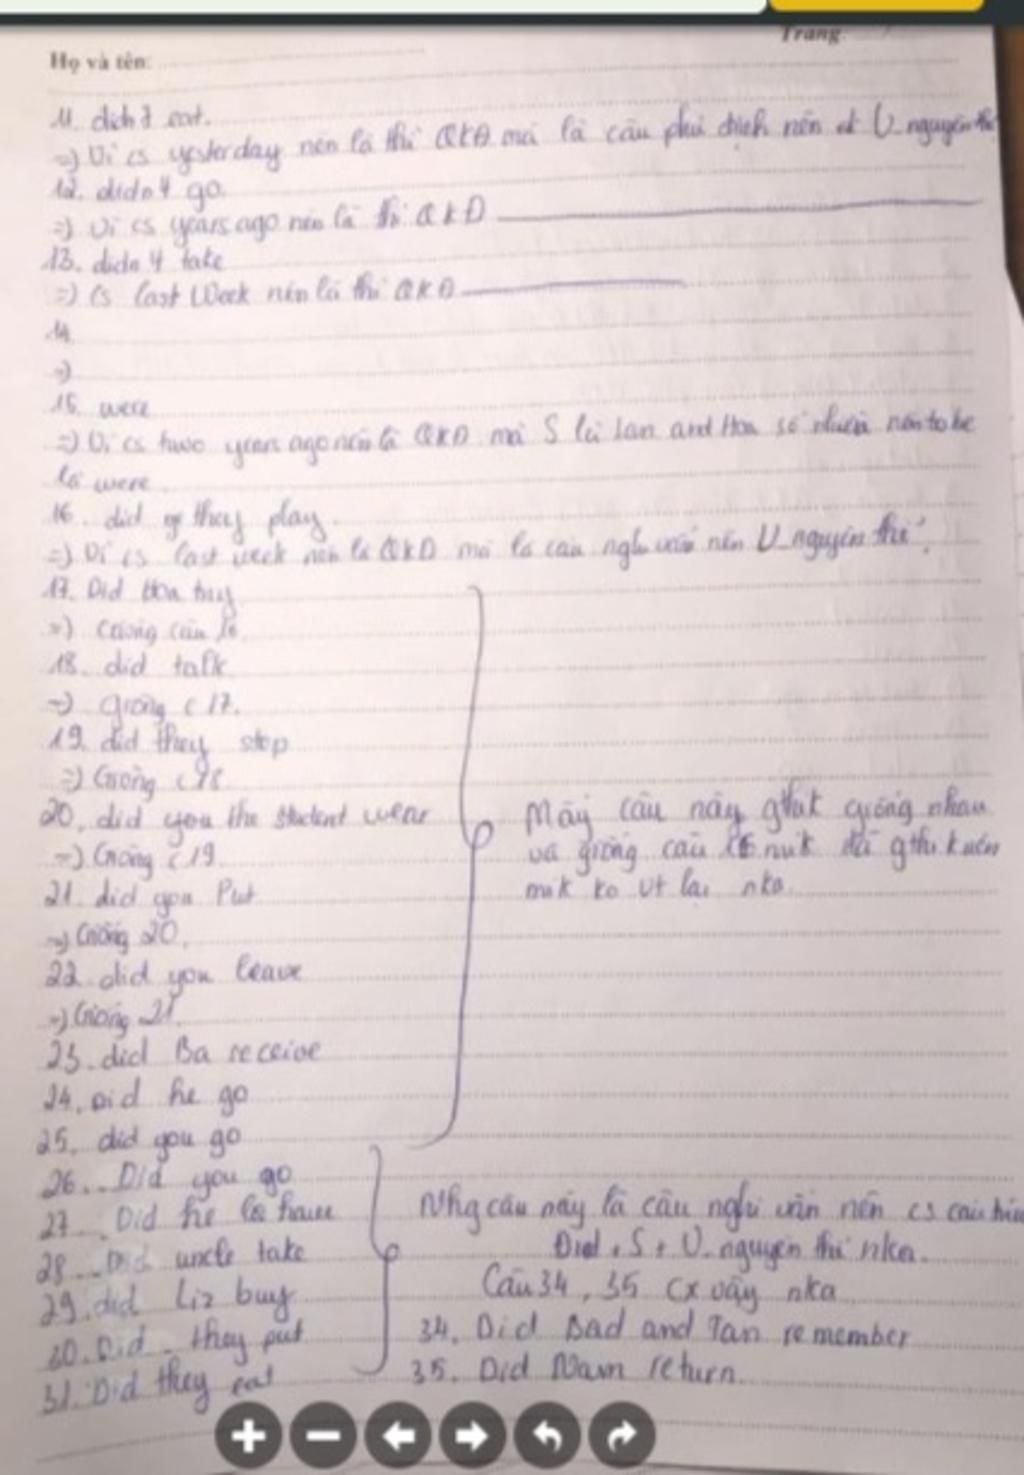 Trang:
Họ và tên:
11. didn't eat.
=) Vì cs yesterday nên là thì QKĐ mà là câu phủ định nên
12. didn't go.
=) Vì cs years ago nên là thì QKĐ
13. didn't take
=) Cs last week nên là thì QKĐ
14.
=)
15. were
=) Vì cs two years ago nên là QKĐ mà S là Lan and Hoa số nhiều nên to be
là were
16. did they play
=) Vì cs last week nên là QKĐ mà là câu nghi vấn nên V_nguyên thể.
17. Did Hoa buy
=) Giống câu 16.
18. did talk
=) giống c 17.
19. did they stop
=) Giống c 18
20. did you the student wear
=) Giống c 19
21. did you Put
=) Giống 20.
22. did you leave
=) Giống 21.
23. did Ba receive
24. Did he go
25. did you go
Mấy câu này giống nhau
và giống câu 16 mik đã
mik ko vt lại nka.
26. Did you go
27. Did he have
28. Did uncle take
29. did Liz buy
30. Did they put
31. Did they eat
Nhg câu này là câu nghi vấn nên cs
Did + S + V_nguyên thể nka.
Câu 34, 35 cx vậy nka
34. Did Bad and Tan remember
35. Did Nam return.